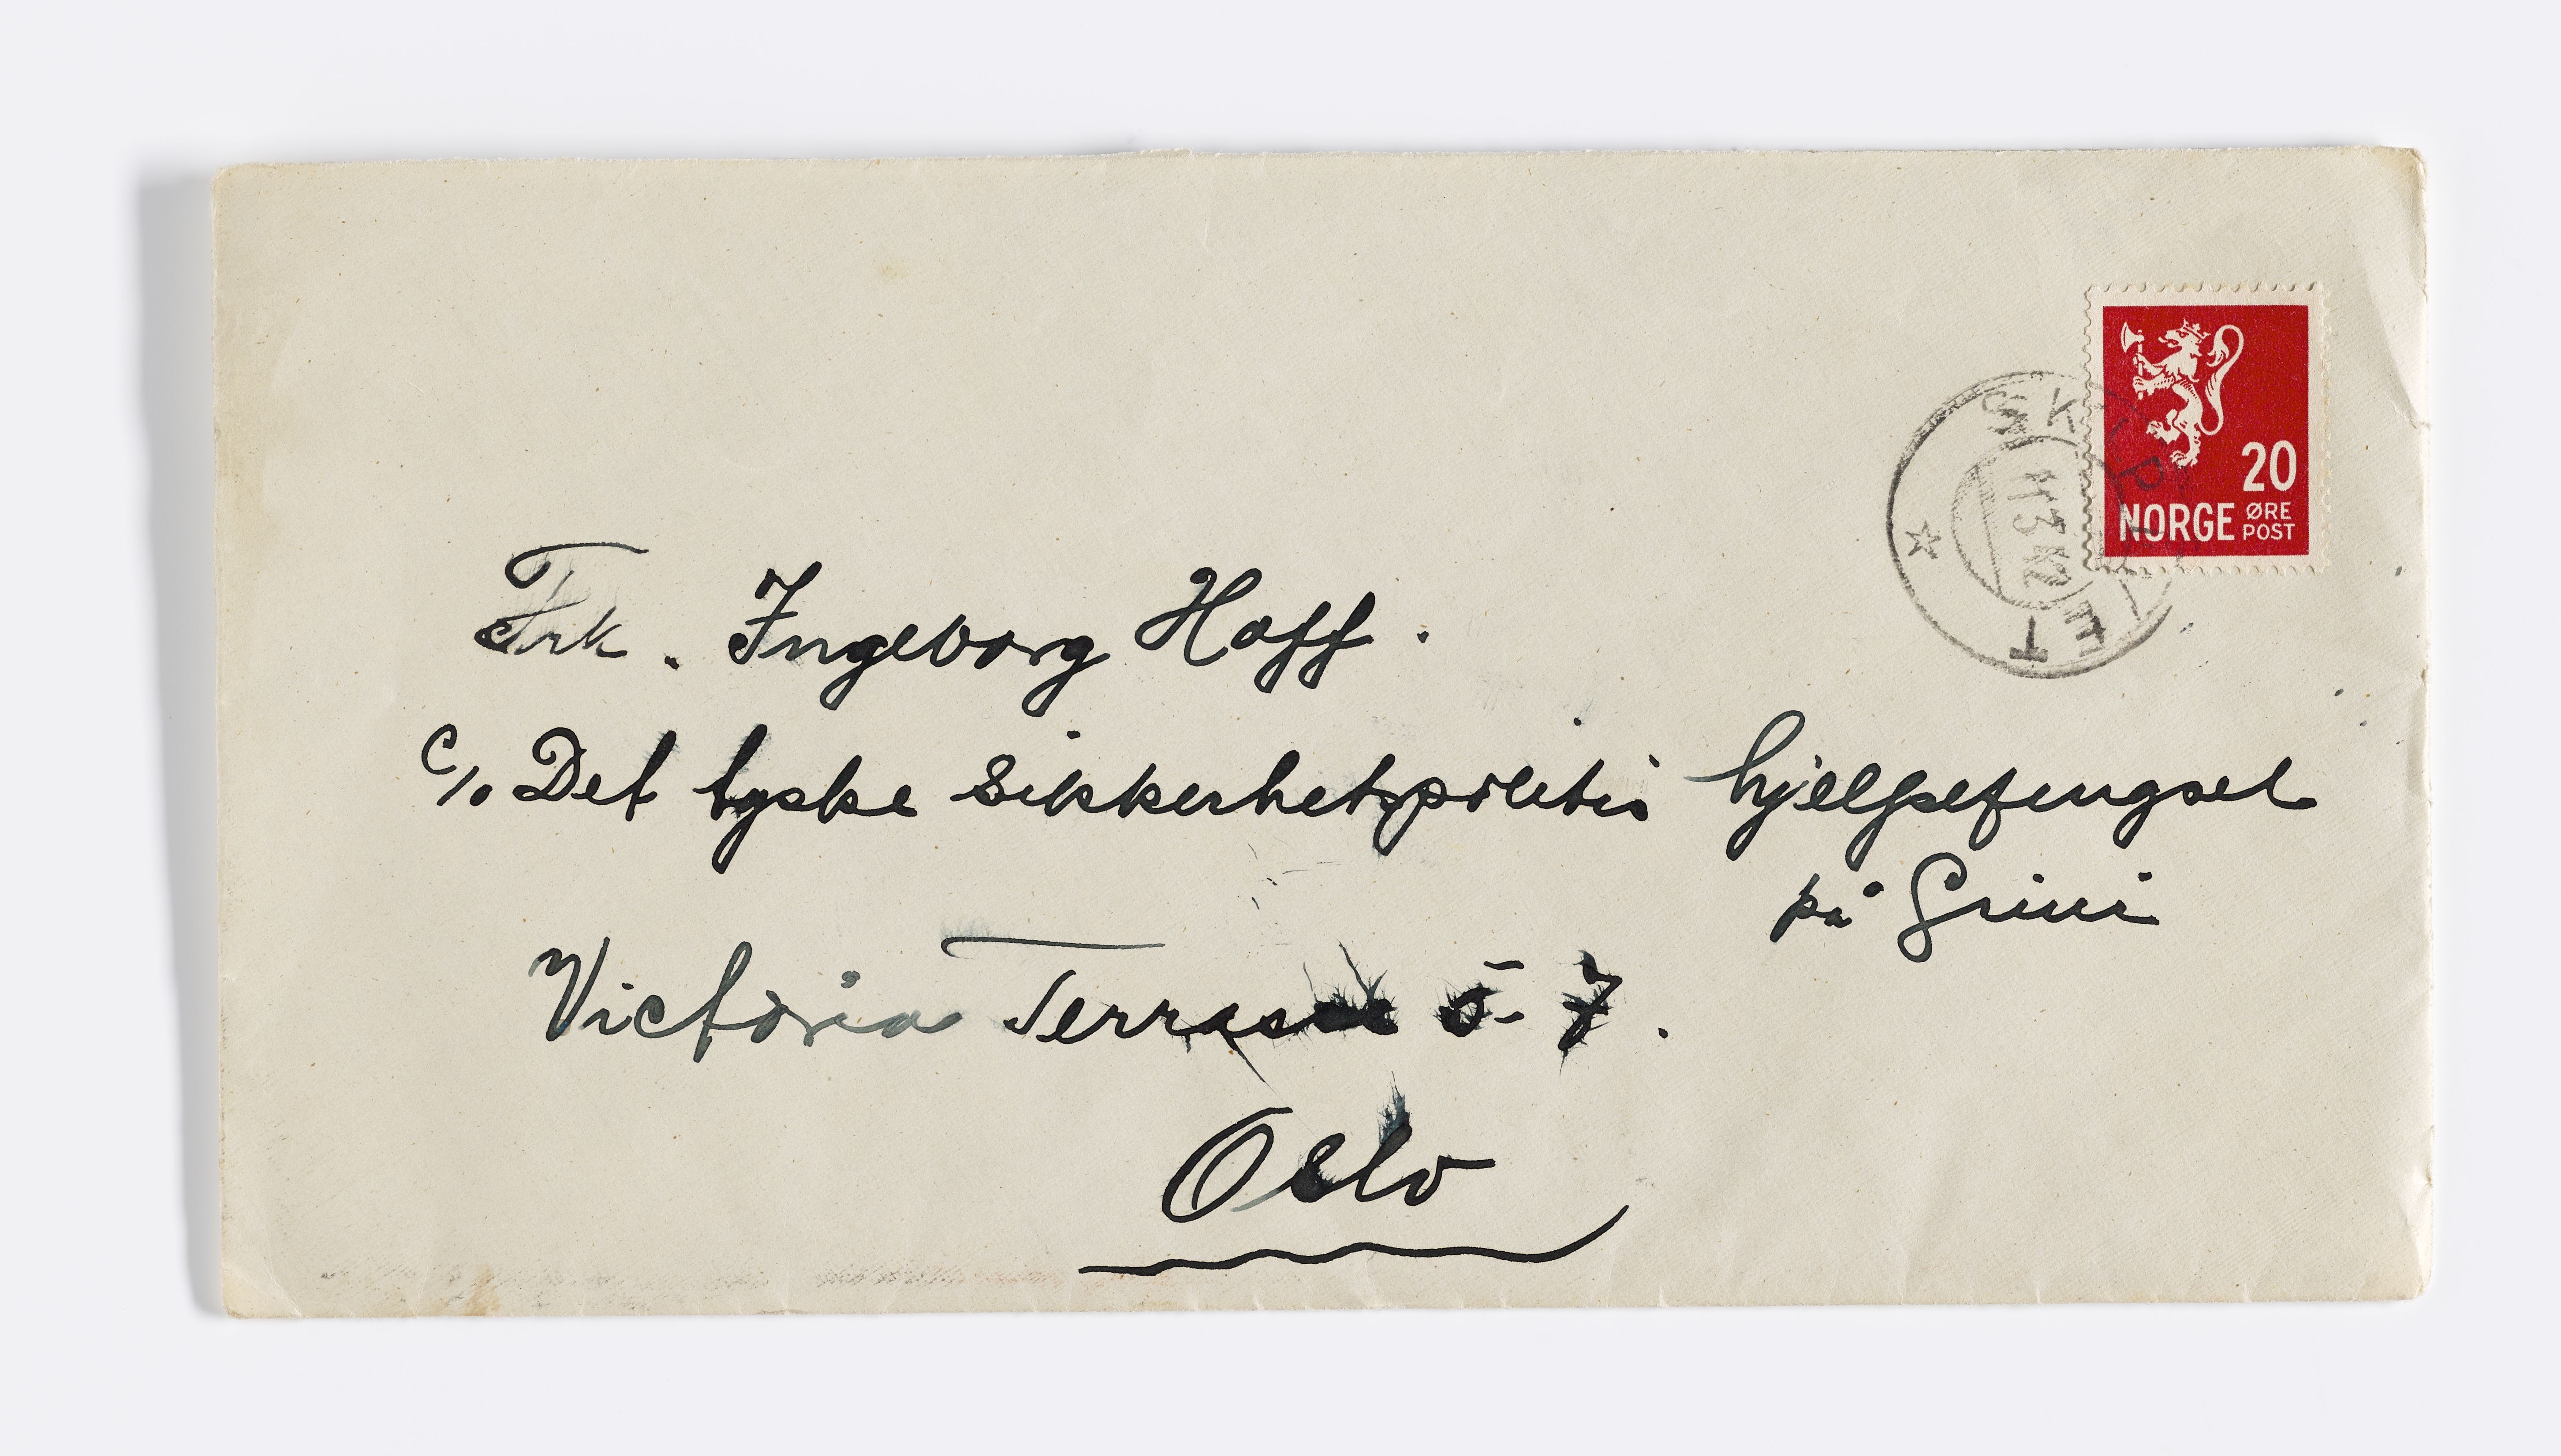 20
NORGE ØRE POST
11 3 42
Frk. Ingeborg Hoff.
c/o Det tyske sikkerhetspolitis hjelpefengsel
på Grini
Victoria Terrasse 5-7.
Oslo